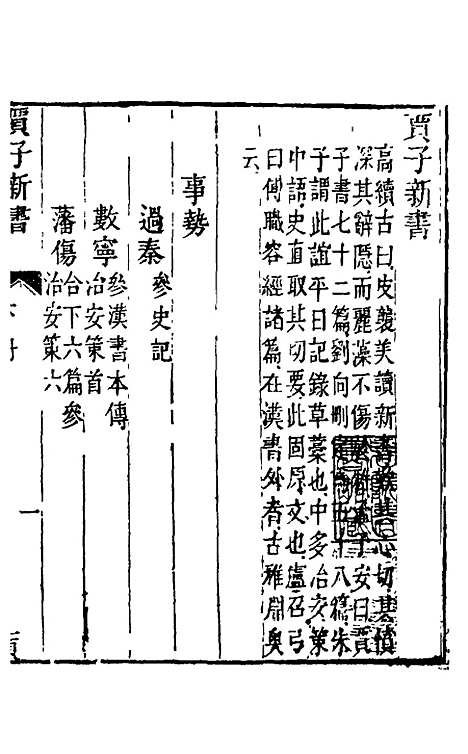 賈子新書
高續古曰皮襲美讀新書歎其心切其憤
深其辭隱而麗藻不傷安曰賈
子書七十二篇劉向刪定五十八篇朱
子謂此誼平日記錄草藁也中多治安策
中語史直取其切要此固原文也盧召弓
曰傅職容經諸篇在漢書外者古雅淵奥
云
事勢
過秦 參史記
數寧 參漢書本傳
治安策首
藩傷 合下六篇參
治安策六
賈子新書
一